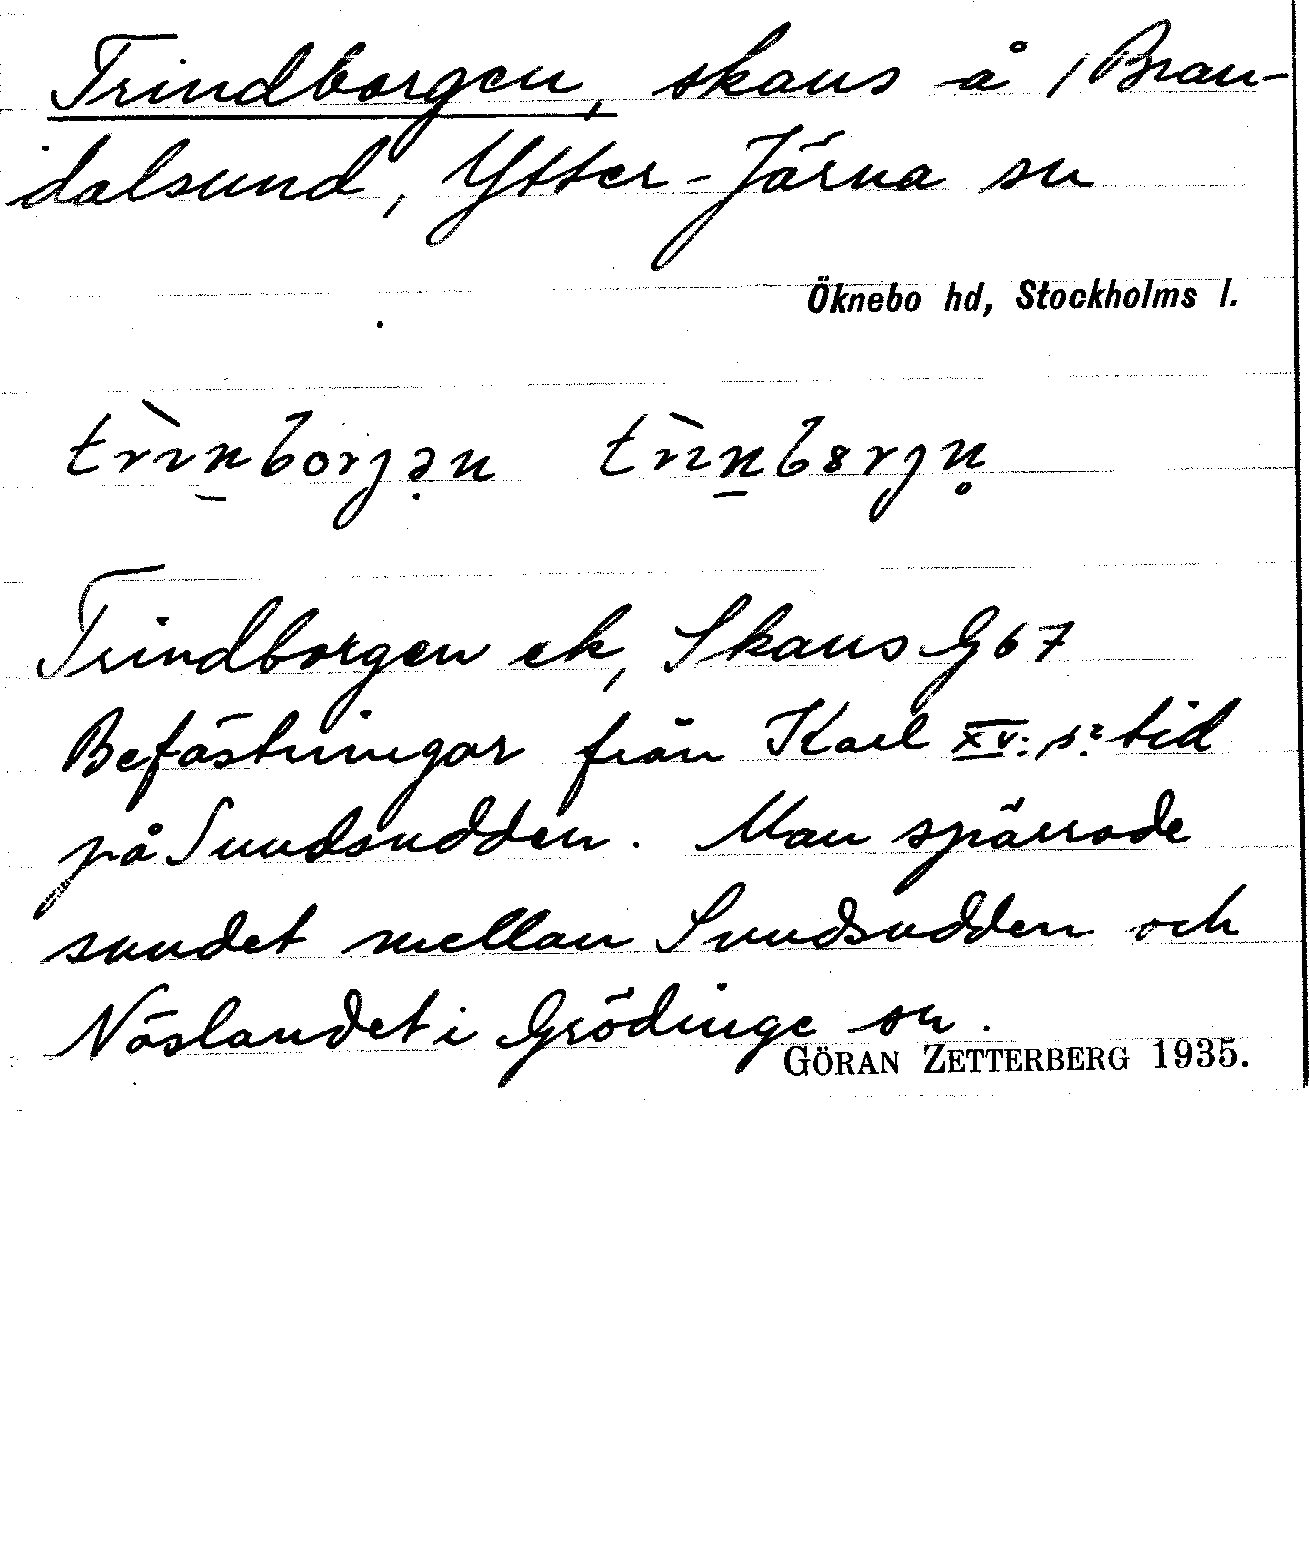 Trindborgen, skans å /Bran-
dalsund, Ytter-Järna sn
Öknebo hd, Stockholms l.
trìnborjən trìnbɞrjn̥
Trindborgen ek, Skans G67
Befästningar från Karl XV:s? tid
på Sundsudden. Man spärrade
sundet mellan Sundsudden och
Näslandet i Grödinge sn.
GÖRAN ZETTERBERG 1935.